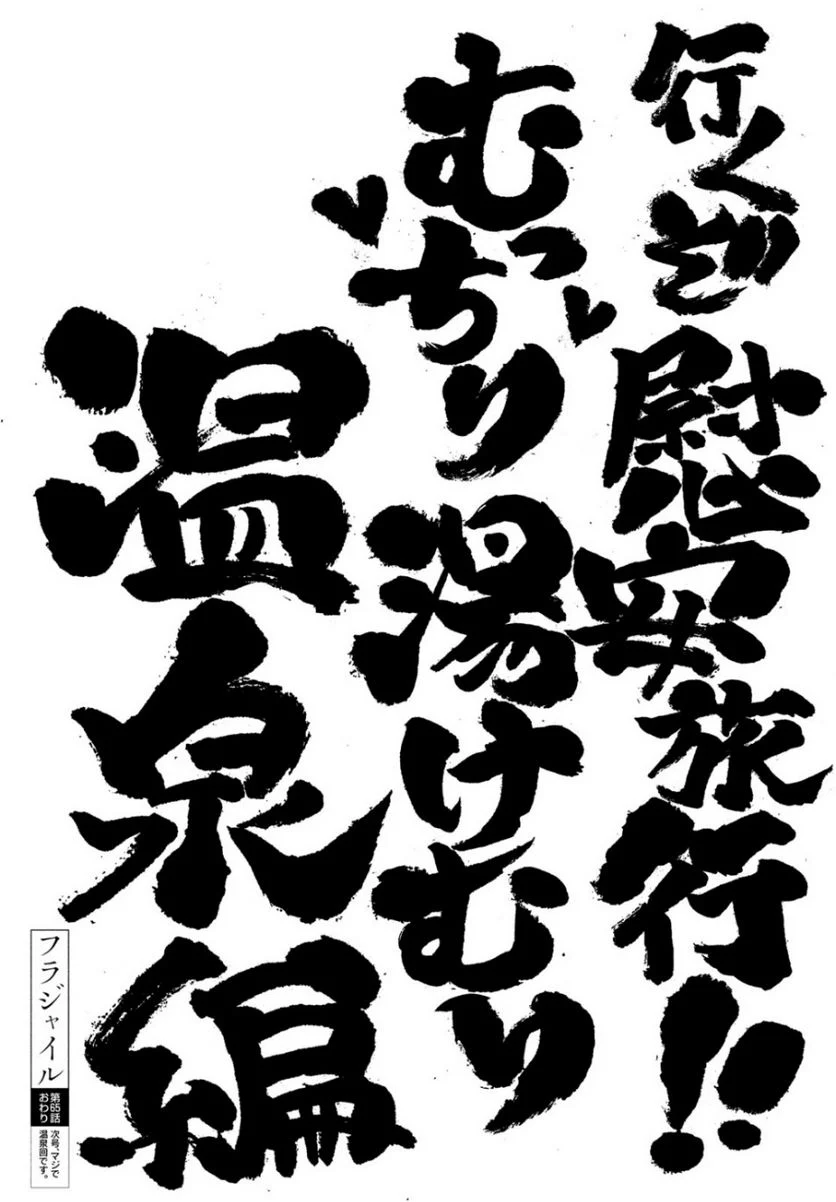 行くぞ慰安旅行!!
むっちり♥湯けむり♥
温泉編
フラジャイル
第65話
おわり
次号、マジで
温泉回です。